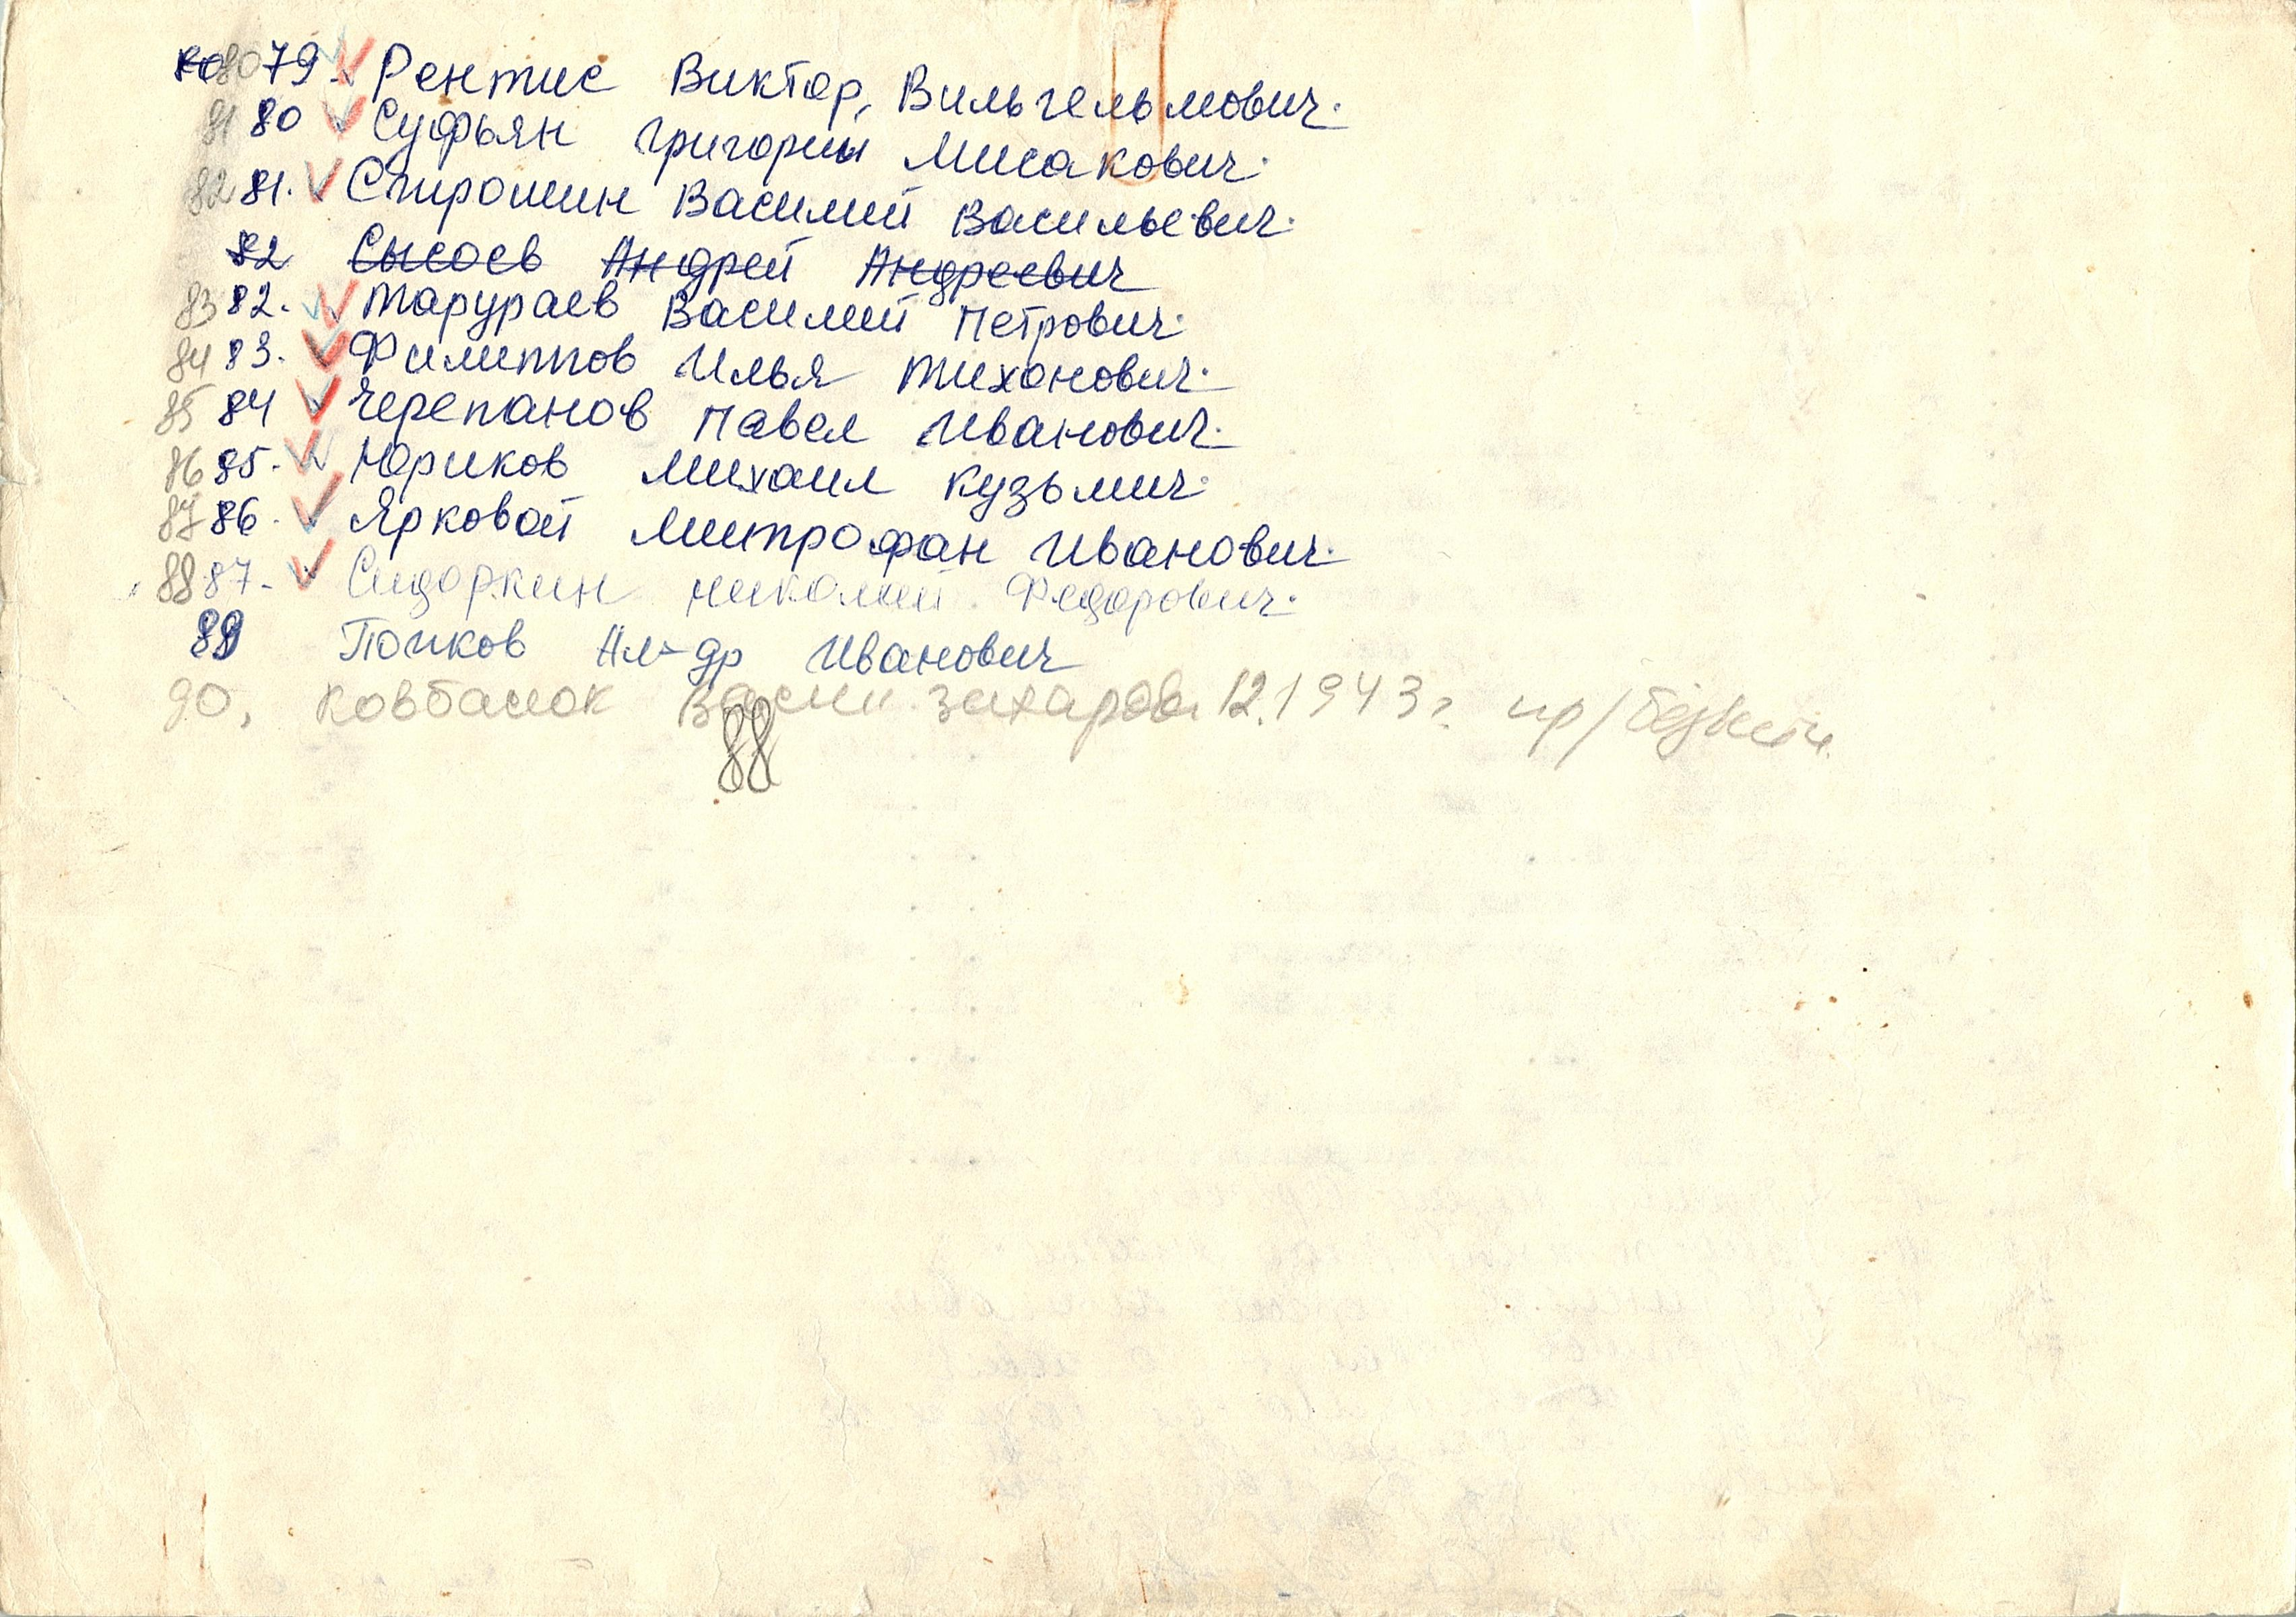 80 79. Рентис Виктор, Вильгельмович.
81 80 Суфьян Григорий Мисакович.
82 81. Спирошин Василий Васильевич.
82 Сысоев Андрей Андреевич
83 82. Тарураев Василий Петрович.
84 83. Филиппов Илья Тиханович.
85 84 Черепанов Павел Иванович.
86 85. Юриков Михаил Кузьмич.
87 86. Ярковой Митрофан Иванович.
88 87. Сидоркин Николай Федорович.
89 Попков Ал-др Иванович
90. Ковбасюк Васил Захаров. 12.1943 г.
88